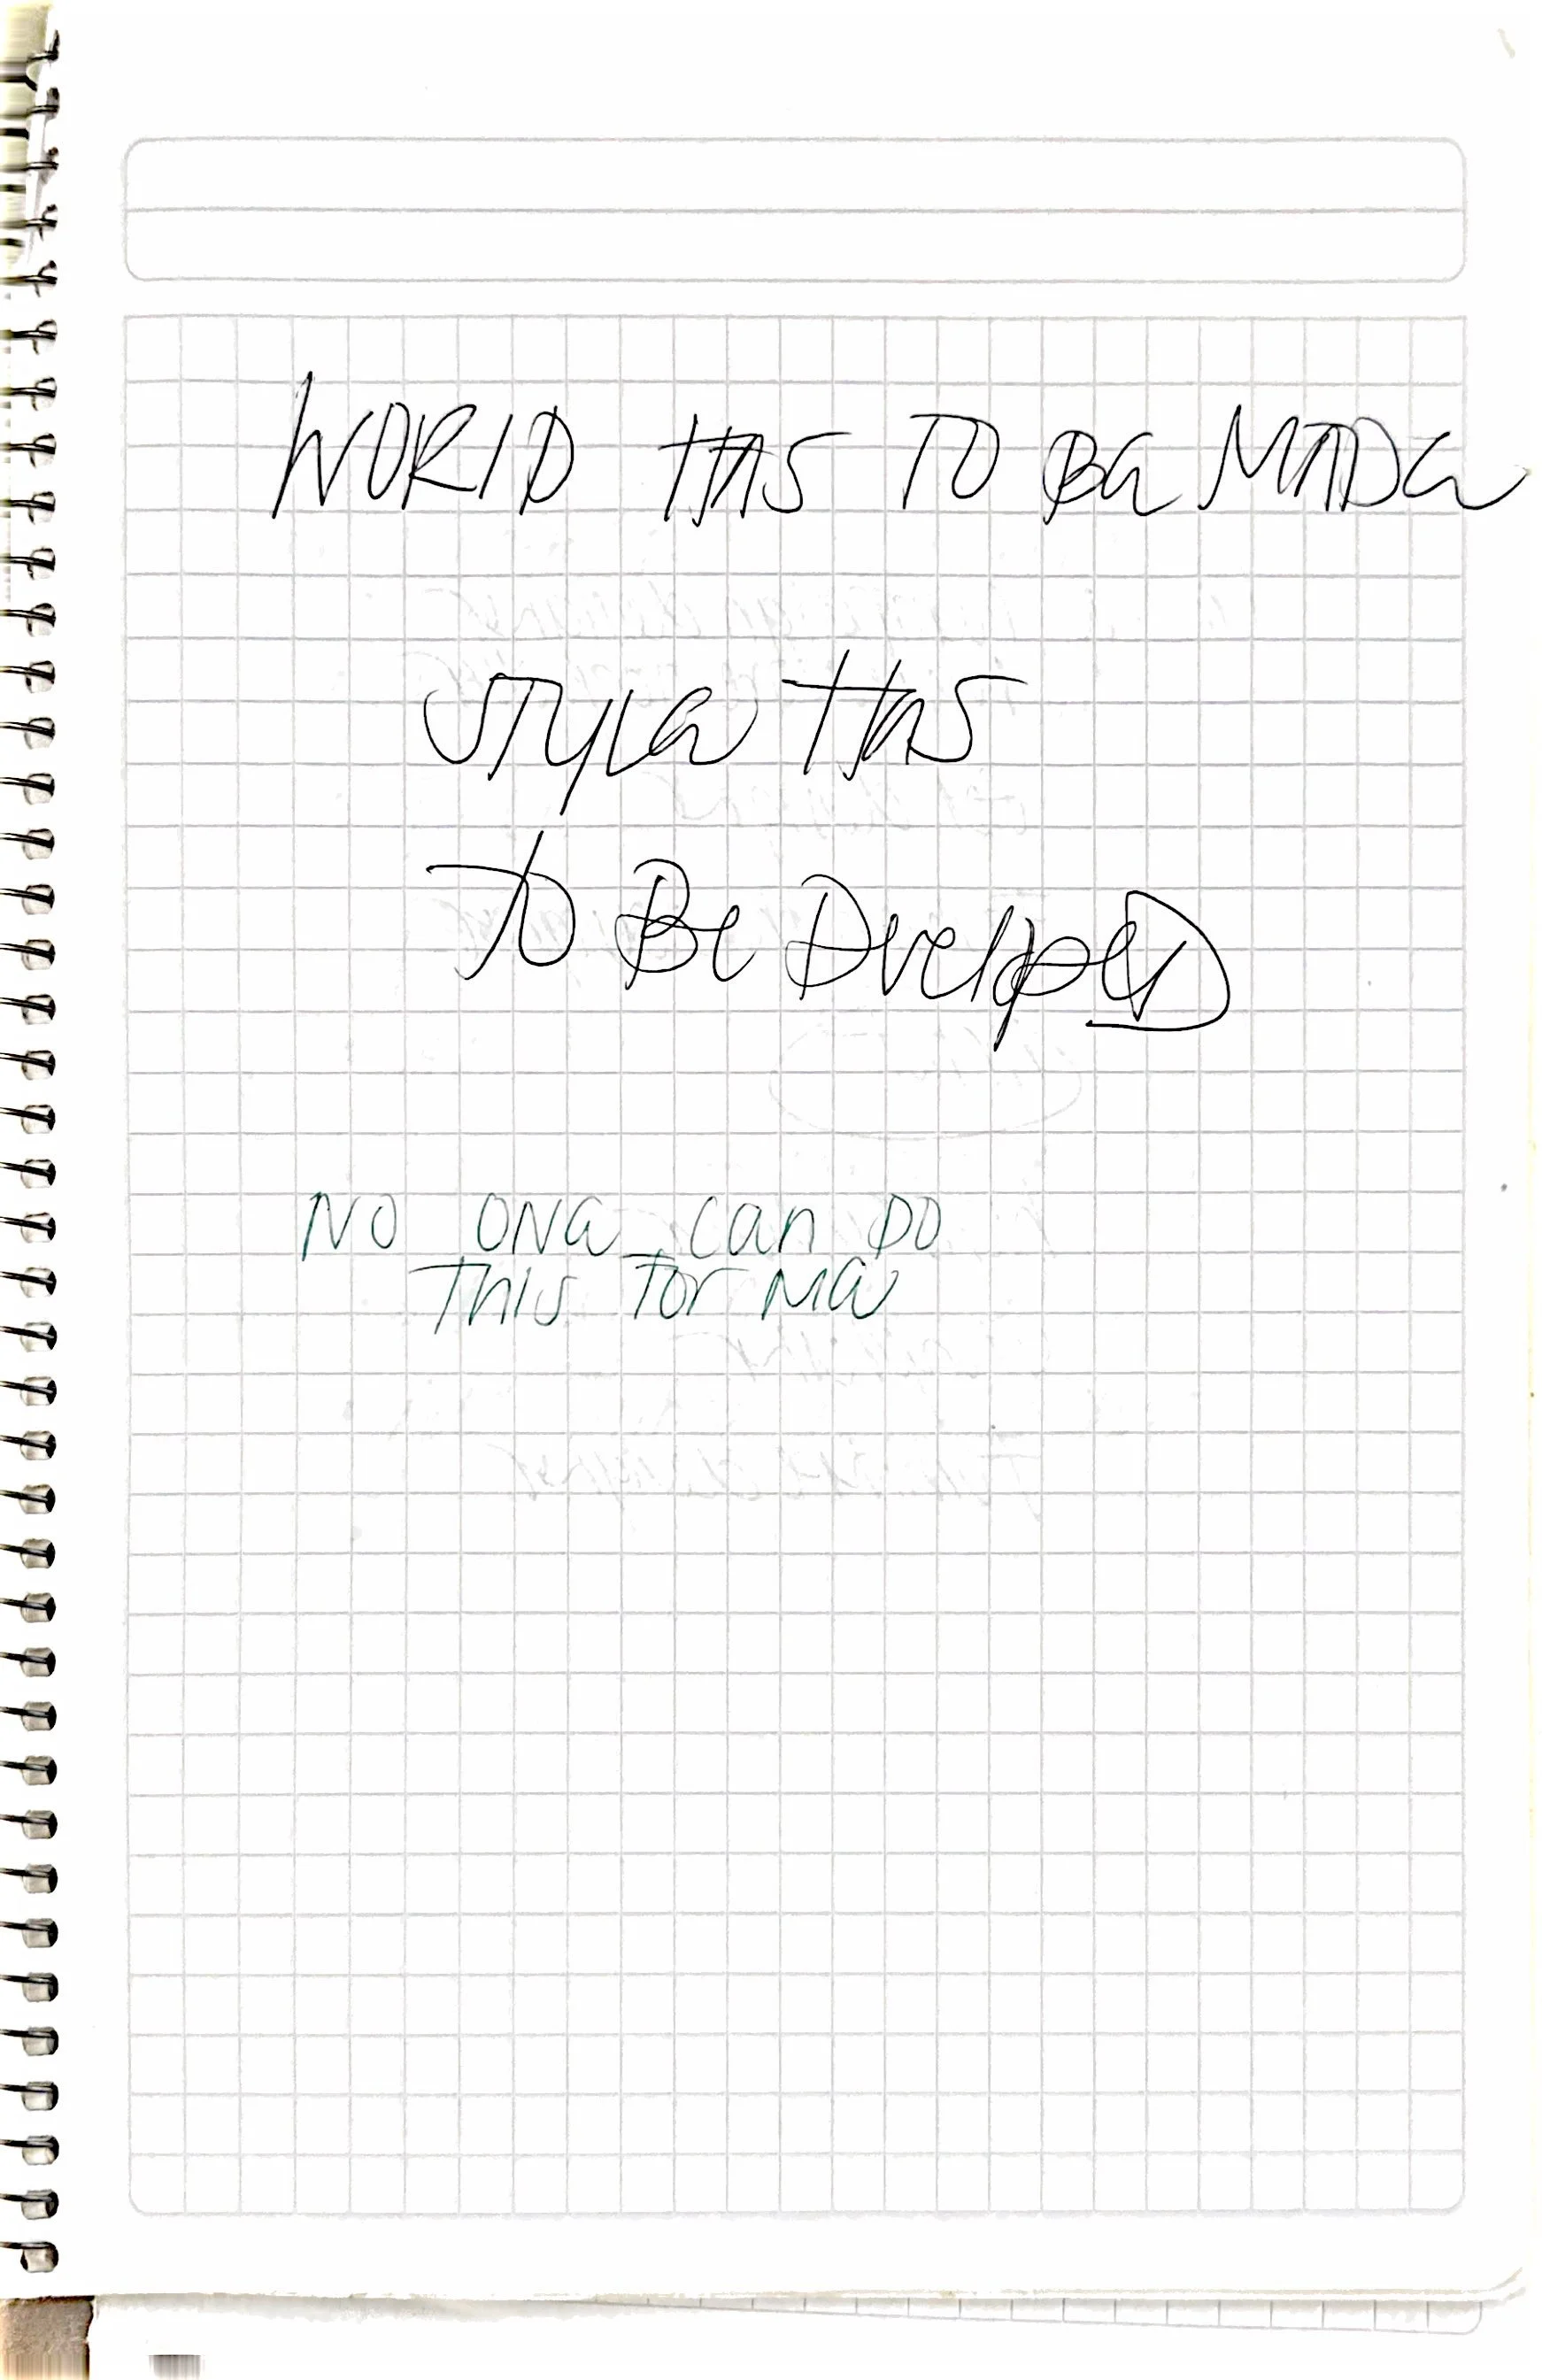 WORLD HAS TO Be MADe
STyLe HAS
TO Be DvelopeD
NO ONe can DO
THIS FOR Me